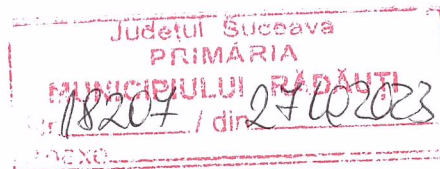 Județul Suceava
PRIMĂRIA
MUNICIPIULUI RĂDĂUȚI
Nr. 18207 / din 27.02.2023
ANEXE